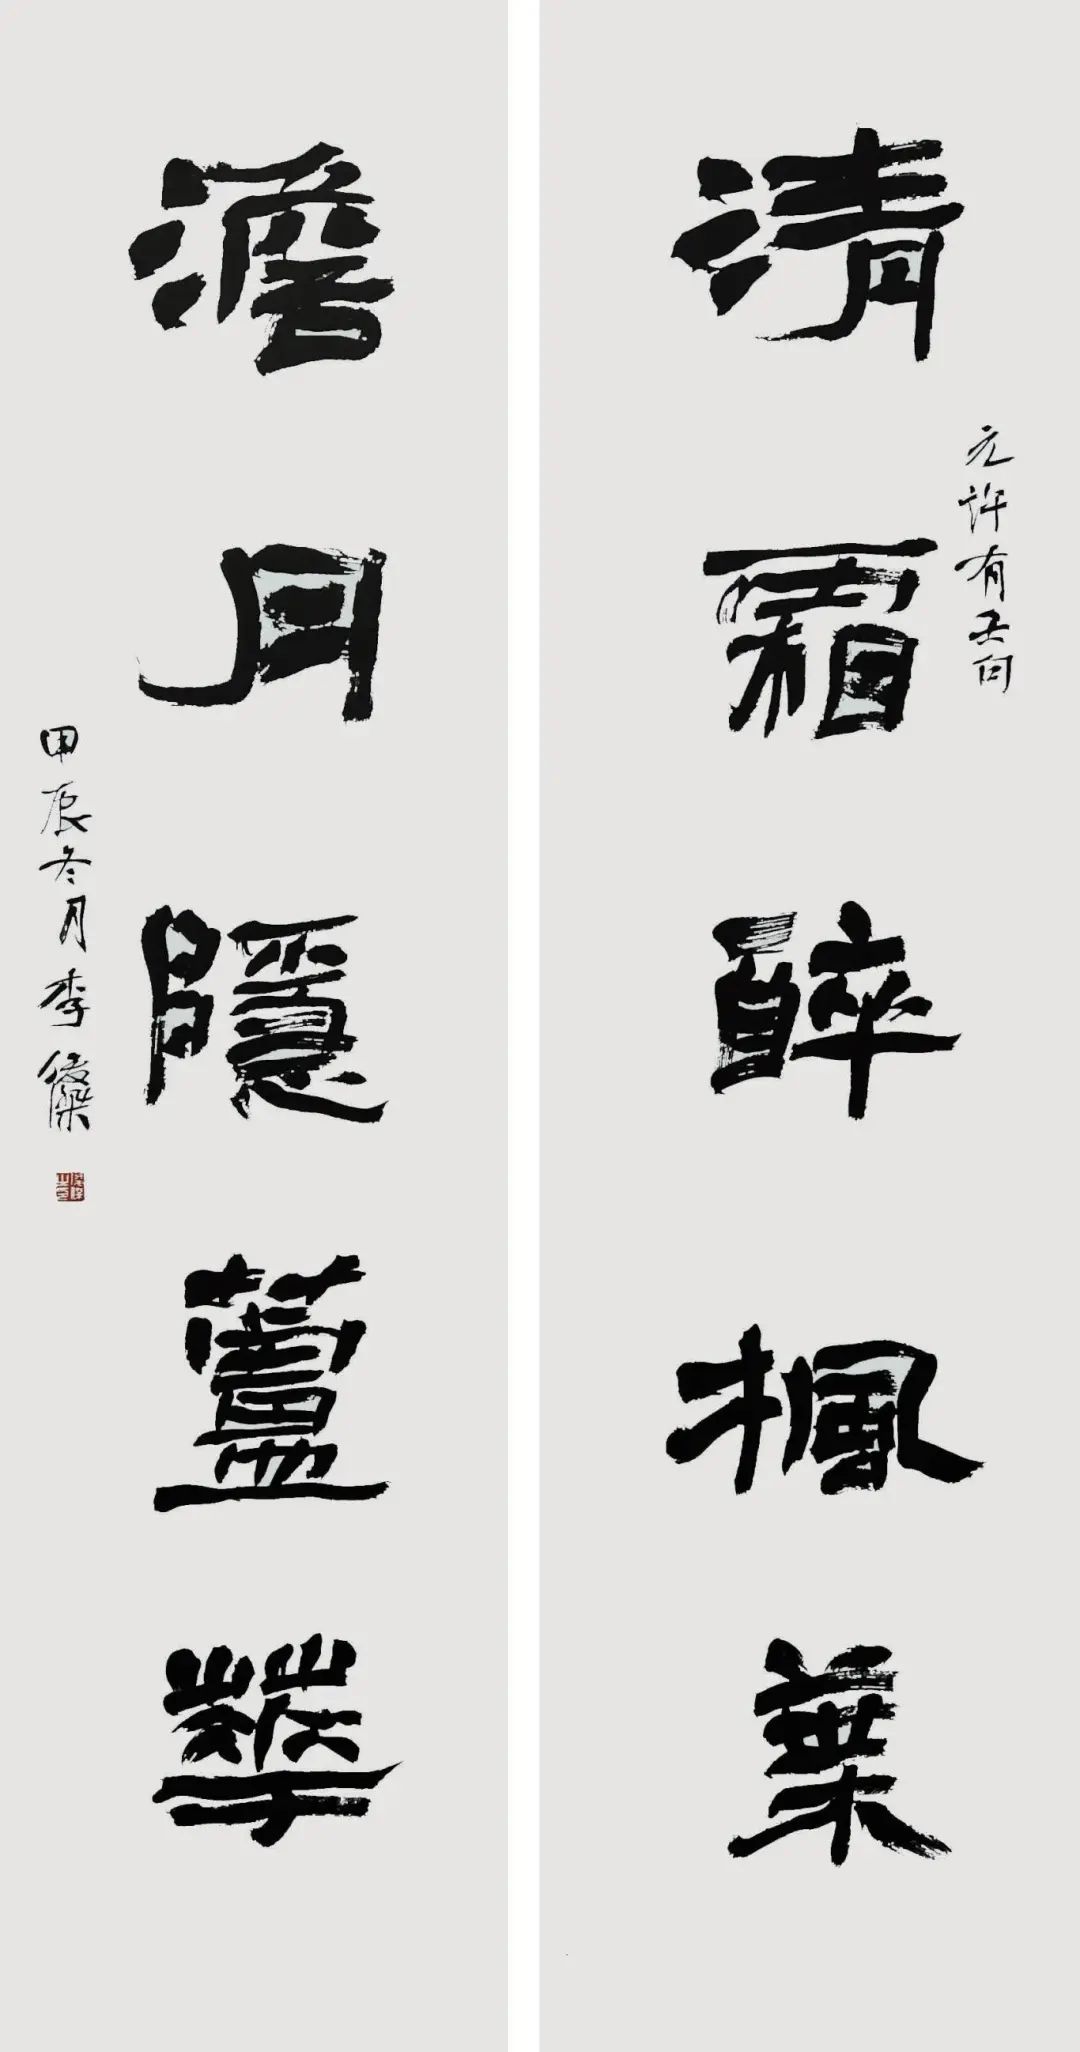 清霜醉楓葉
元許有壬句
澹月隱蘆華
甲辰冬月李